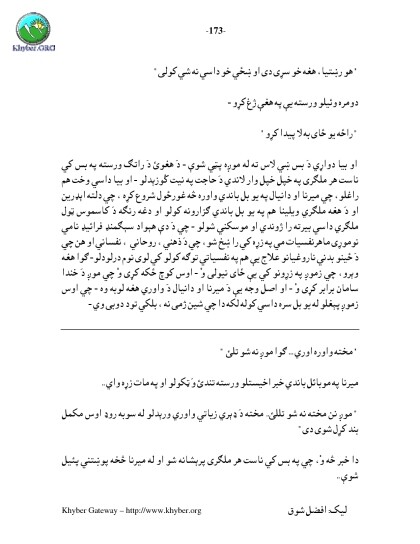 -173-
Khyber.ORG
"هو رښتيا، هغه خو سړی دی او ښځې خو داسې نه شي کولی"
دومره وئيلو ورسته يې په هغې ژغ کړو-
"راځه يو ځای به لا پيدا کړو"
او بيا دواړې دَ بس ښي لاس ته له موږه پټې شوې - دَ هغوئ دَ راتګ ورسته په بس کې
ناست هر ملګری په خپل خپل وار لاندې دَ حاجت په نيت کوزېدلو - او بيا داسې وخت هم
راغلو، چې ميرنا او دانيال په يو بل باندې واوره څه غورځول شروع کړه، چې دلته اېډرين
او دَ هغه ملګرې ويلينا هم په يو بل باندې ګزارونه کولو او دغه رنګه دَ کاسموس ټول
ملګري داسې بيرته را ژوندي او موسکني شولو - چې دَ دې هېواد سېګمنډ فرائيډ نامې
نوموړی ماهر نفسيات مې په زړه کې را ښخ شو، چې دَ ذهني، روحاني، نفساني او هن چې
دَ ځينو بدني ناروغيانو علاج يې هم په نفسياتي توګه کولو کې لوی نوم درلودلو- ګوا هغه
ويرو، چې زموږ په زړونو کې يې ځای نيولی وُ - اوس کوچ ځکه کړی وُ چې موږ دَ خدا
سامان برابر کړی وُ - او اصل وجه يې دَ ميرنا او دانيال دَ واورې هغه لوبه وه - چې اوس
زموږ پېغلو له يو بل سره داسې کوله لکه دا چې شين ژمی نه، بلکې نود دوبی وي-
"مخته واوره اورې... ګوا موږ نه شو تللئ"
ميرنا په موبائل باندې خبر اخيستلو ورسته تندئ وَ ټکولو او په مات زړه وای..
"موږ نن مخته نه شو تللئ. مخته دَ ډېرې زياتې واورې ورېدلو له سوبه روډ اوس مکمل
بند کړل شوی دی"
دا خبر څه وُ، چې په بس کې ناست هر ملګری پرېشانه شو او له ميرنا څخه پوښتنې پئيل
شوې..
ليک: افضل شوق
Khyber Gateway – http://www.khyber.org